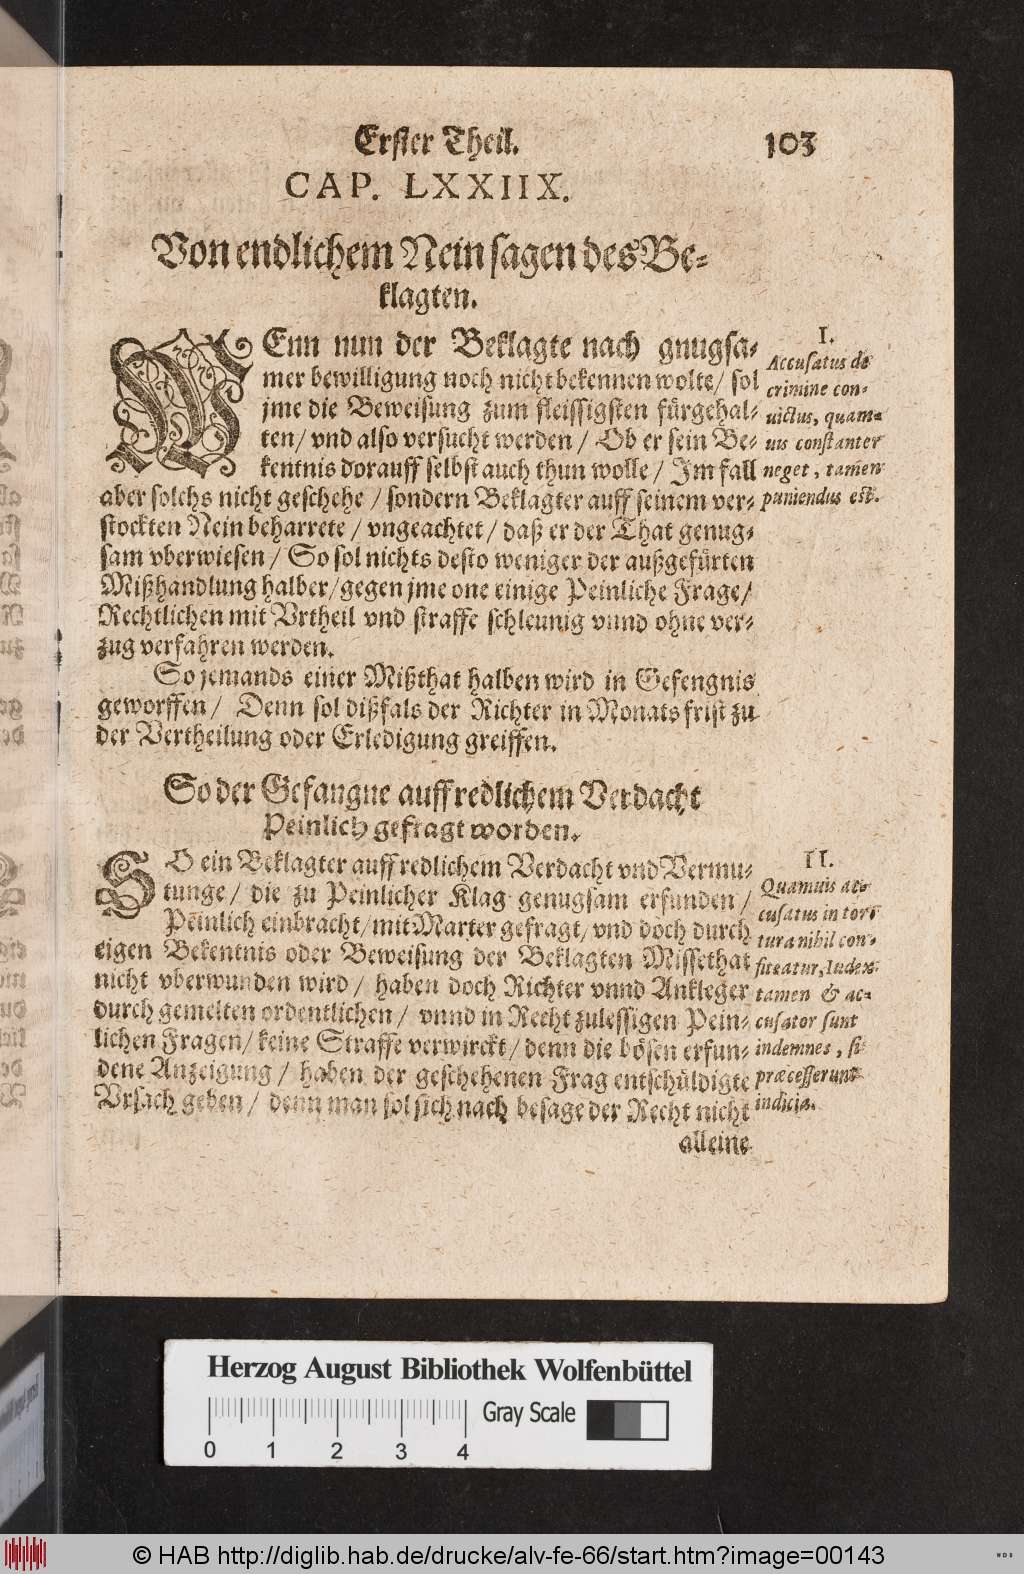 Erster Theil. 103
CAP. LXXIIX.
Von endlichem Nein sagen des Be-
klagten.
WEnn nun der Beklagte nach gnugsa-
mer bewilligung noch nicht bekennen wolte/ sol
jme die Beweisung zum fleissigsten fürgehal-
ten/ vnd also versucht werden / Ob er sein Be-
kentnis dorauff selbst auch thun wolle / Im fall
aber solchs nicht geschehe / sondern Beklagter auff seinem ver-
stockten Nein beharrete / vngeachtet / daß er der That genug-
sam vberwiesen / So sol nichts desto weniger der außgefürten
Mißhandlung halber/gegen jme one einige Peinliche Frage/
Rechtlichen mit Vrtheil vnd straffe schleunig vnnd ohne ver-
zug verfahren werden.
I.
Accusatus de
crimine con-
uictus, quam-
uis constanter
neget, tamen
puniendus est.
So jemands einer Mißthat halben wird in Gefengnis
geworffen / Denn sol dißfals der Richter in Monats frist zu
der Vertheilung oder Erledigung greiffen.
So der Gefangne auff redlichem Verdacht
Peinlich gefragt worden.
SO ein Beklagter auff redlichem Verdacht vnd Vermu-
tunge / die zu Peinlicher Klag genugsam erfunden /
Peinlich einbracht/mit Marter gefragt/vnd doch durch
eigen Bekentnis oder Beweisung der Beklagten Missethat
nicht vberwunden wird / haben doch Richter vnnd Ankleger
durch gemelten ordentlichen / vnnd in Recht zulessigen Pein-
lichen Fragen/ keine Straffe verwirckt/ denn die bösen erfun-
dene Anzeigung / haben der geschehenen Frag entschüldigte
Vrsach geben / denn man sol sich nach besage der Recht nicht
alleine
II.
Quamuis ac-
cusatus in tor-
tura nihil con-
fiteatur, Iudex
tamen & ac-
cusator sunt
indemnes, si
præcesserunt
indicia.
Herzog August Bibliothek Wolfenbüttel
Gray Scale
0 1 2 3 4
© HAB http://diglib.hab.de/drucke/alv-fe-66/start.htm?image=00143